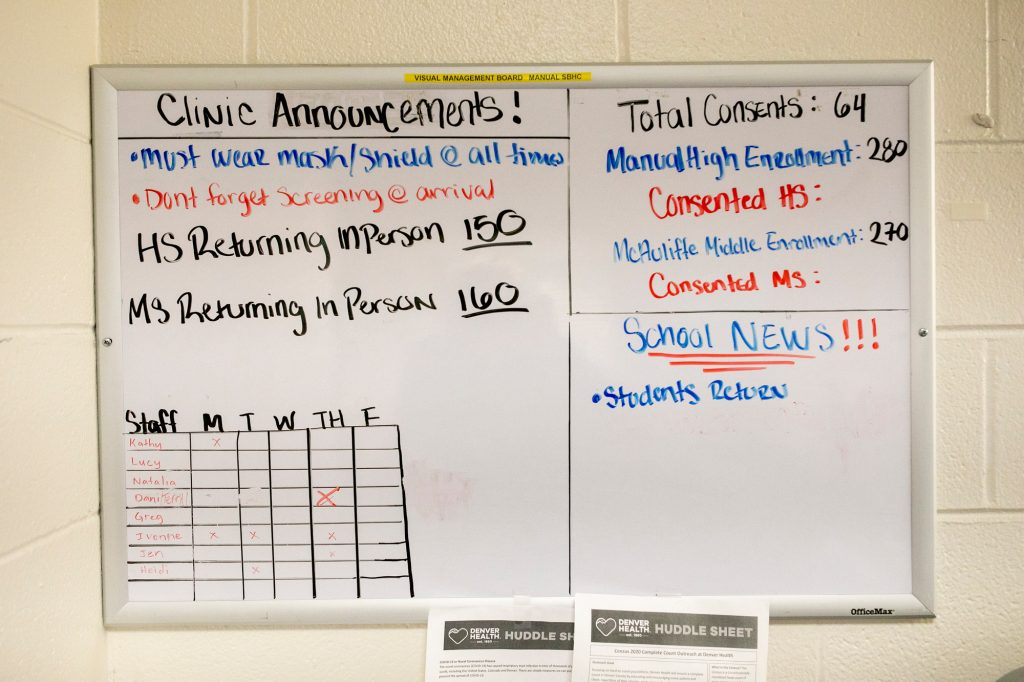 VISUAL MANAGEMENT BOARD MANUAL SBHC
Clinic Announcements!
•Must wear mask/shield @ all times
•Dont forget Screening @ arrival
HS Returning In Person 150
MS Returning In Person 160
Staff M T W TH F
Kathy X
Lucy
Natalia
X
Greg
Ivonne X X X
Jen X
Heidi X
Total Consents: 64
Manual High Enrollment: 280
Consented HS:
McAuliffe Middle Enrollment: 270
Consented MS:
School NEWS!!!
•Students Return
OfficeMax
DENVER HEALTH
est. 1860
HUDDLE SH
DENVER HEALTH
est. 1860
HUDDLE SHEET
Census 2020 Complete Count Outreach at Denver Health